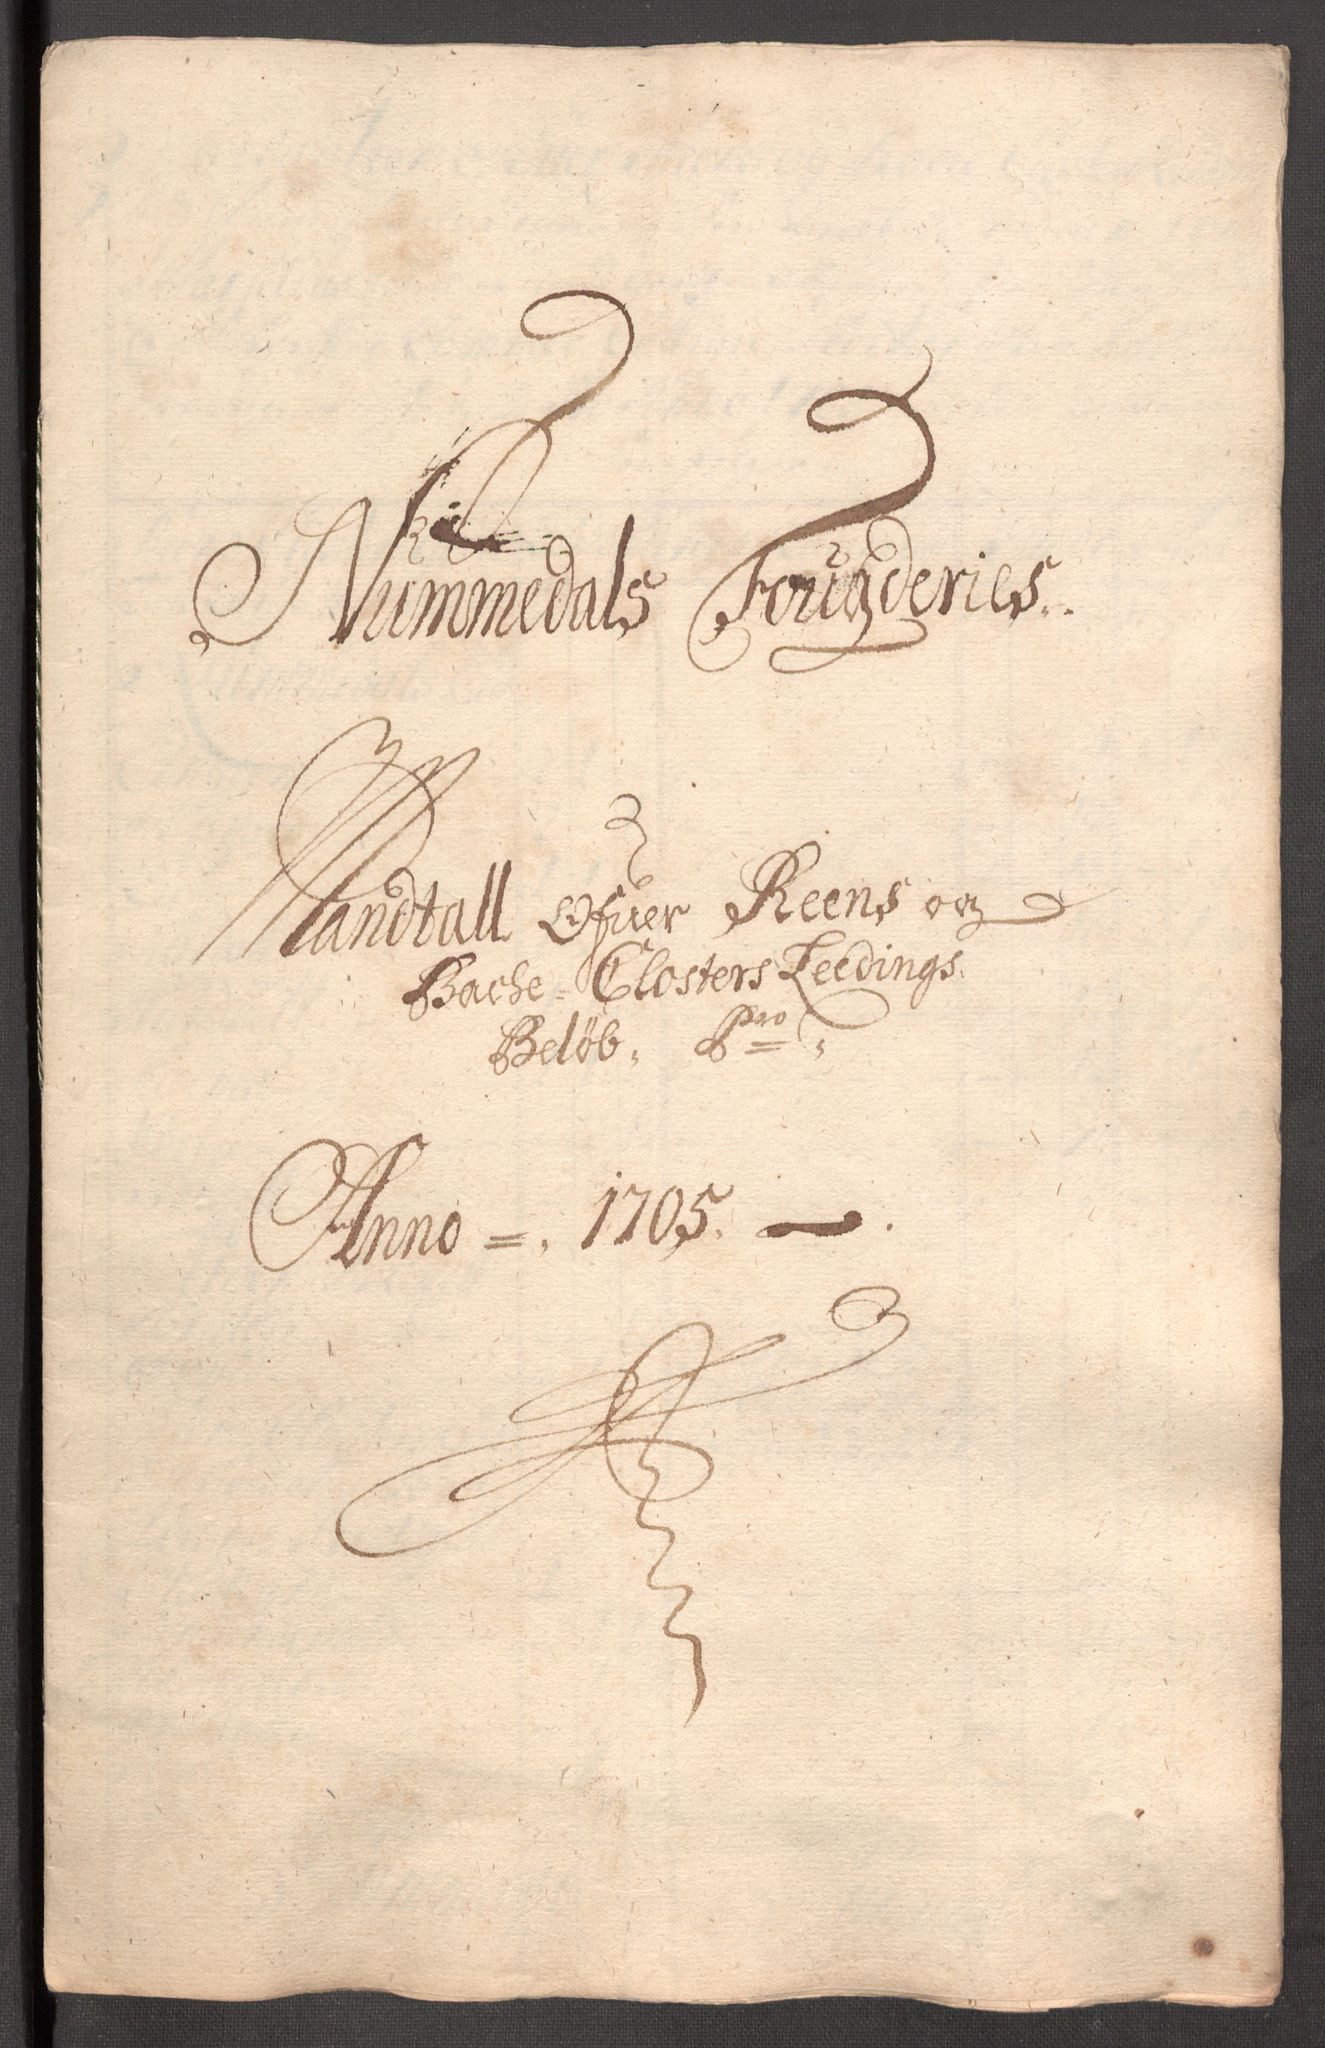 Nummedals Fougderies.
Mandtall Ofuer Reens og
Bache = Closters Leedings
Beløb, Pro
Anno = . 1705.